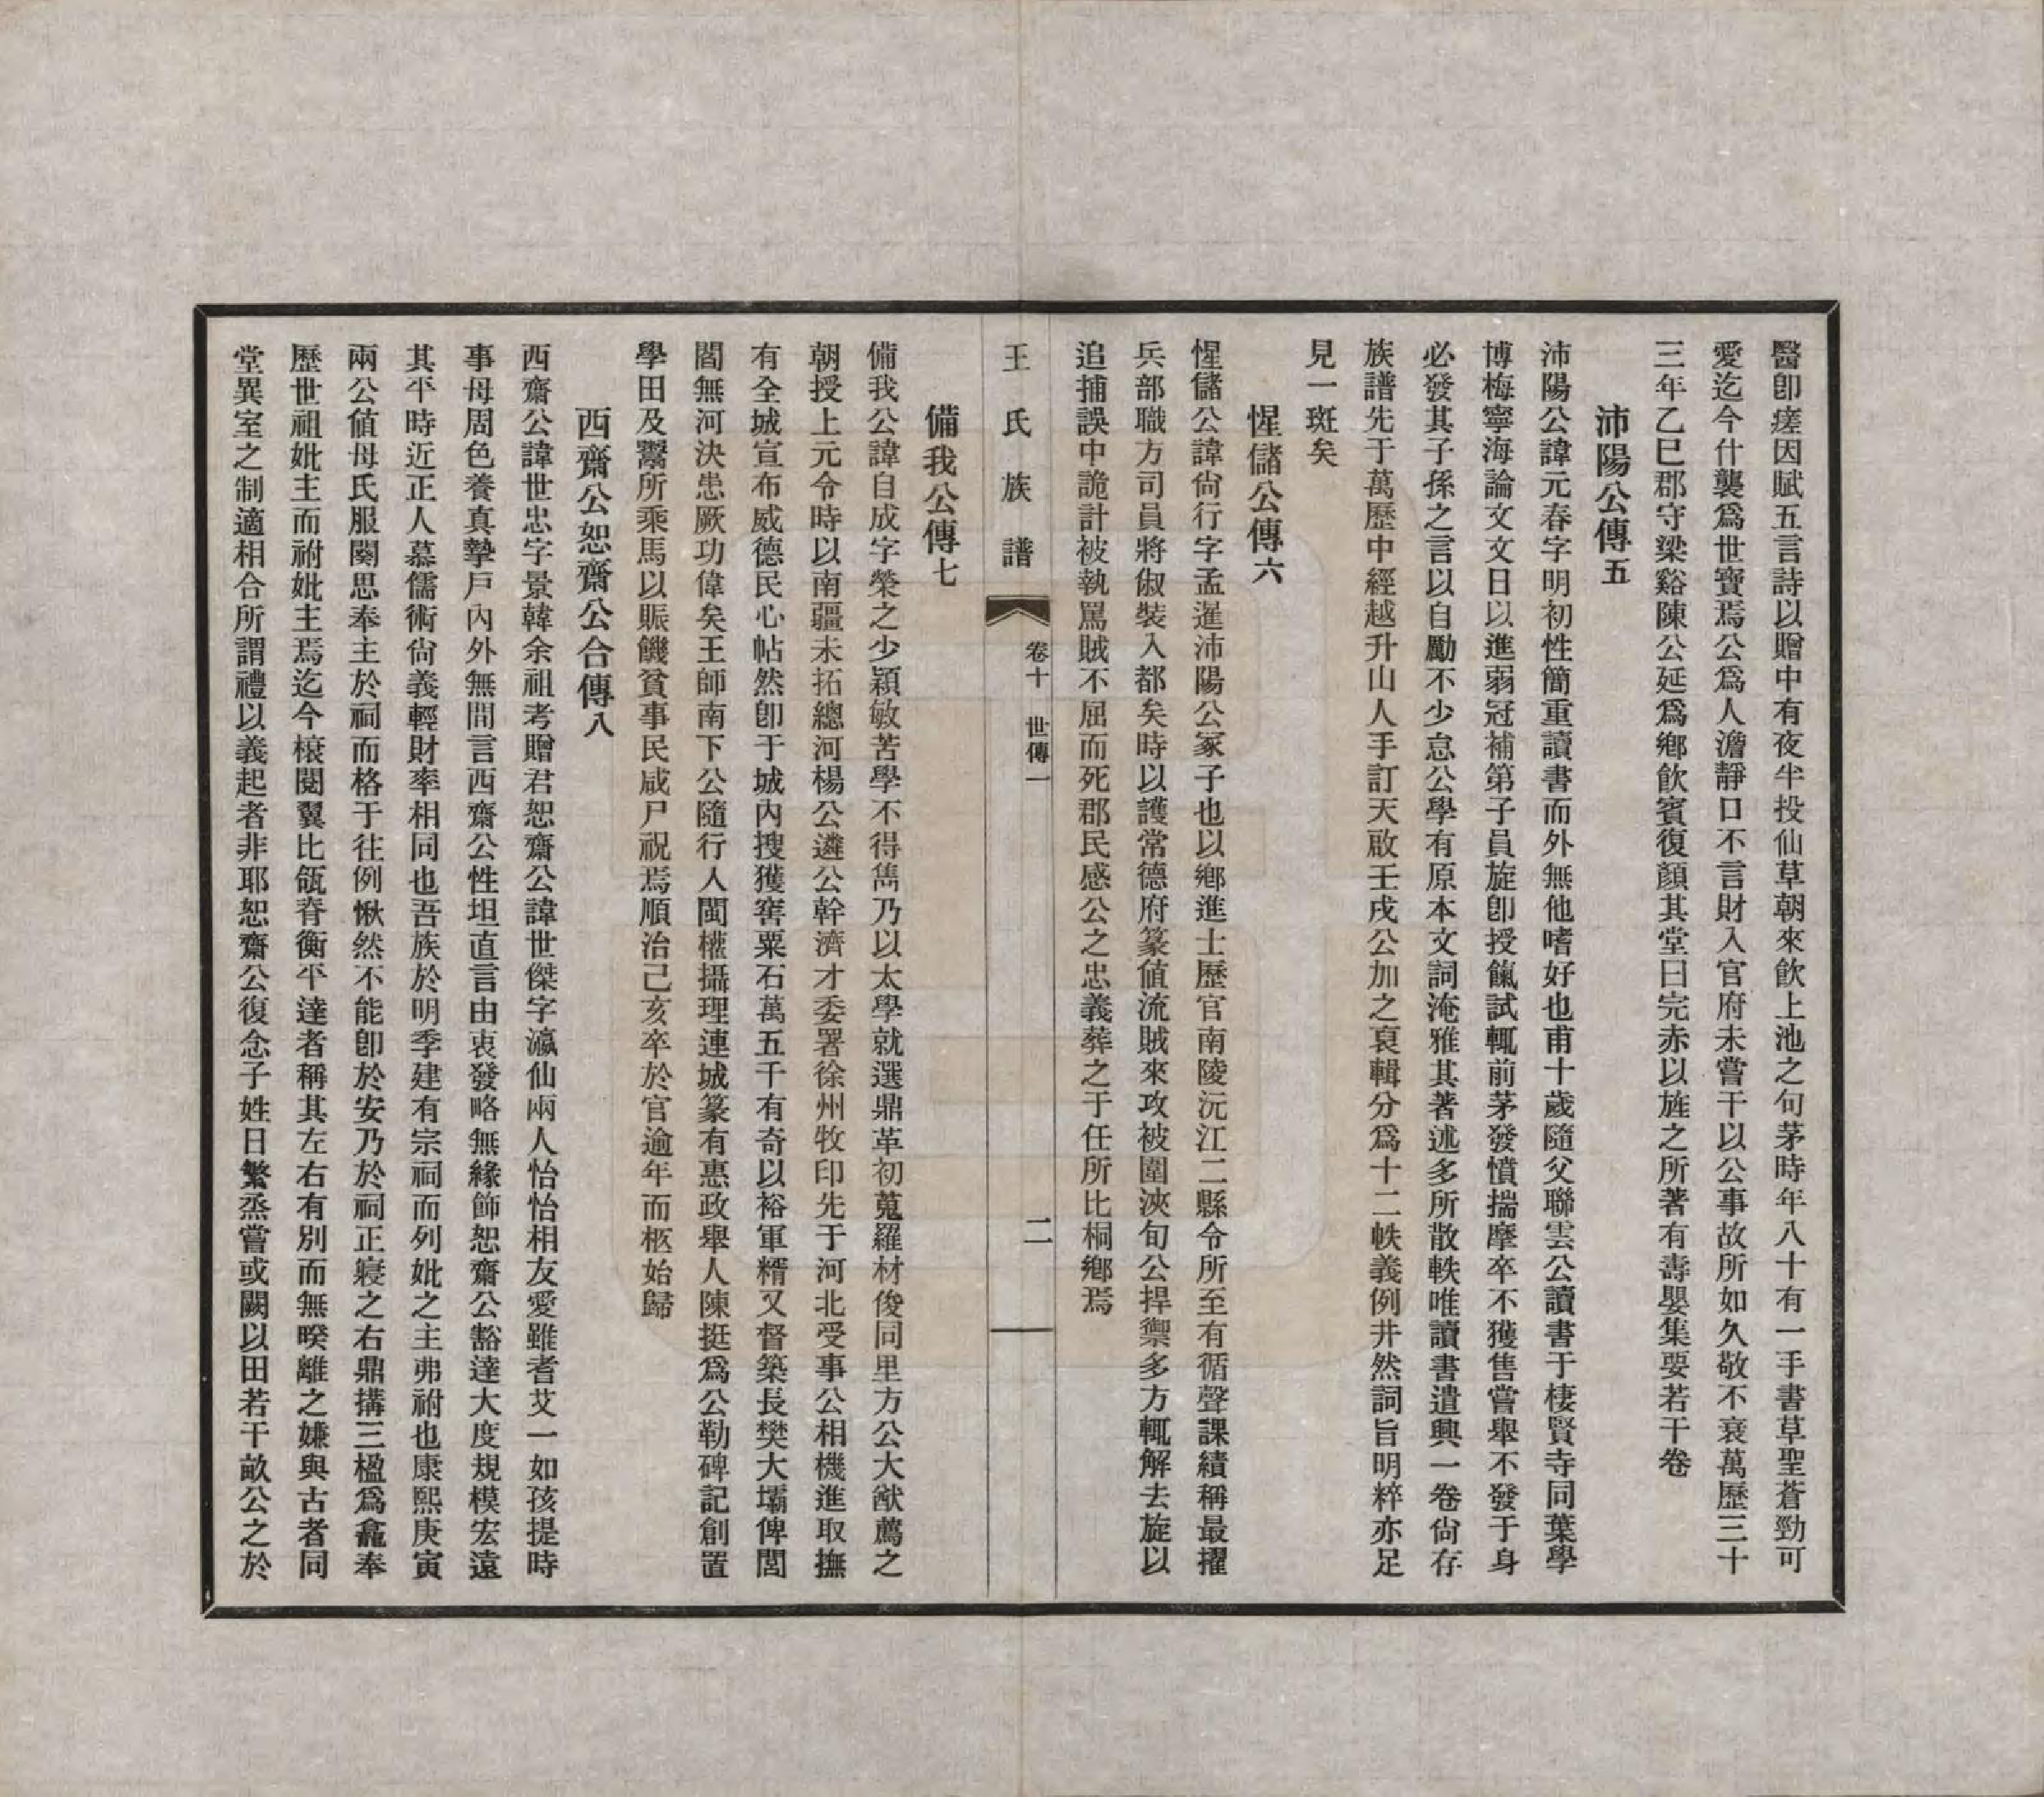 醫卽瘥因賦五言詩以贈中有夜半投仙草朝來飮上池之句茅時年八十有一手書草聖蒼勁可
愛迄今什襲爲世寶焉公爲人澹靜口不言財入官府未嘗干以公事故所如久敬不衰萬歷三十
三年乙巳郡守梁谿陳公延爲鄕飮賓復顏其堂曰完赤以旌之所著有壽嬰集要若干卷
沛陽公傳五
沛陽公諱元春字明初性簡重讀書而外無他嗜好也甫十歲隨父聯雲公讀書于棲賢寺同葉學
博梅寧海論文文日以進弱冠補第子員旋卽授餼試輒前茅發憤揣摩卒不獲售嘗舉不發于身
必發其子孫之言以自勵不少怠公學有原本文詞淹雅其著述多所散軼唯讀書遣興一卷尙存
族譜先于萬歷中經越升山人手訂天啟壬戌公加之裒輯分爲十二帙義例井然詞旨明粹亦足
見一斑矣
惺儲公傳六
惺儲公諱尙行字孟暹沛陽公冢子也以鄕進士歷官南陵沅江二縣令所至有循聲課績稱最擢
兵部職方司員將俶裝入都矣時以護常德府篆値流賊來攻被圍浹旬公捍禦多方輒解去旋以
追捕誤中詭計被執罵賊不屈而死郡民感公之忠義葬之于任所比桐鄕焉
王氏族譜
卷十 世傳一
二
備我公傳七
備我公諱自成字榮之少穎敏苦學不得雋乃以太學就選鼎革初蒐羅材俊同里方公大猷薦之
朝授上元令時以南疆未拓總河楊公遴公幹濟才委署徐州牧印先于河北受事公相機進取撫
有全城宣布威德民心帖然卽于城內搜獲窖粟石萬五千有奇以裕軍糈又督築長樊大壩俾閭
閻無河決患厥功偉矣王師南下公隨行入閩權攝理連城篆有惠政舉人陳挺爲公勒碑記創置
學田及鬻所乘馬以賑饑貧事民咸尸祝焉順治己亥卒於官逾年而柩始歸
西齋公恕齋公合傳八
西齋公諱世忠字景韓余祖考贈君恕齋公諱世傑字瀛仙兩人怡怡相友愛雖耆艾一如孩提時
事母周色養真摯戶內外無間言西齋公性坦直言由衷發略無緣飾恕齋公豁達大度規模宏遠
其平時近正人慕儒術尙義輕財率相同也吾族於明季建有宗祠而列妣之主弗祔也康熙庚寅
兩公値母氏服闋思奉主於祠而格于往例愀然不能卽於安乃於祠正寢之右鼎搆三楹爲龕奉
歷世祖妣主而祔妣主焉迄今榱閱翼比瓴脊衡平達者稱其左右有別而無暌離之嫌與古者同
堂異室之制適相合所謂禮以義起者非耶恕齋公復念子姓日繁烝嘗或闕以田若干畝公之於